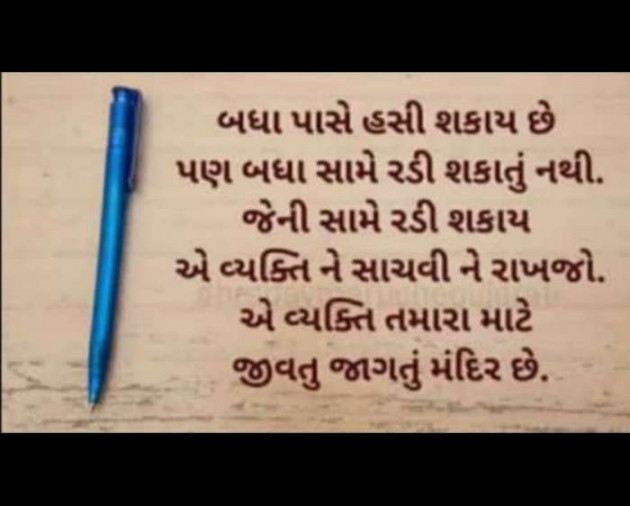 બધા પાસે હસી શકાય છે
પણ બધા સામે રડી શકાતું નથી.
જેની સામે રડી શકાય
એ વ્યક્તિ ને સાચવી ને રાખજો.
એ વ્યક્તિ તમારા માટે
જીવતુ જાગતું મંદિર છે.